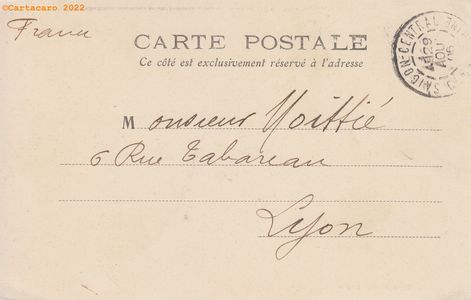 ©Cartacaro 2022
France
CARTE POSTALE
Ce côté est exclusivement réservé à l'adresse
SAIGON-CENTRAL
29
AOU
Monsieur Moittié
6 Rue Tabareau
Lyon